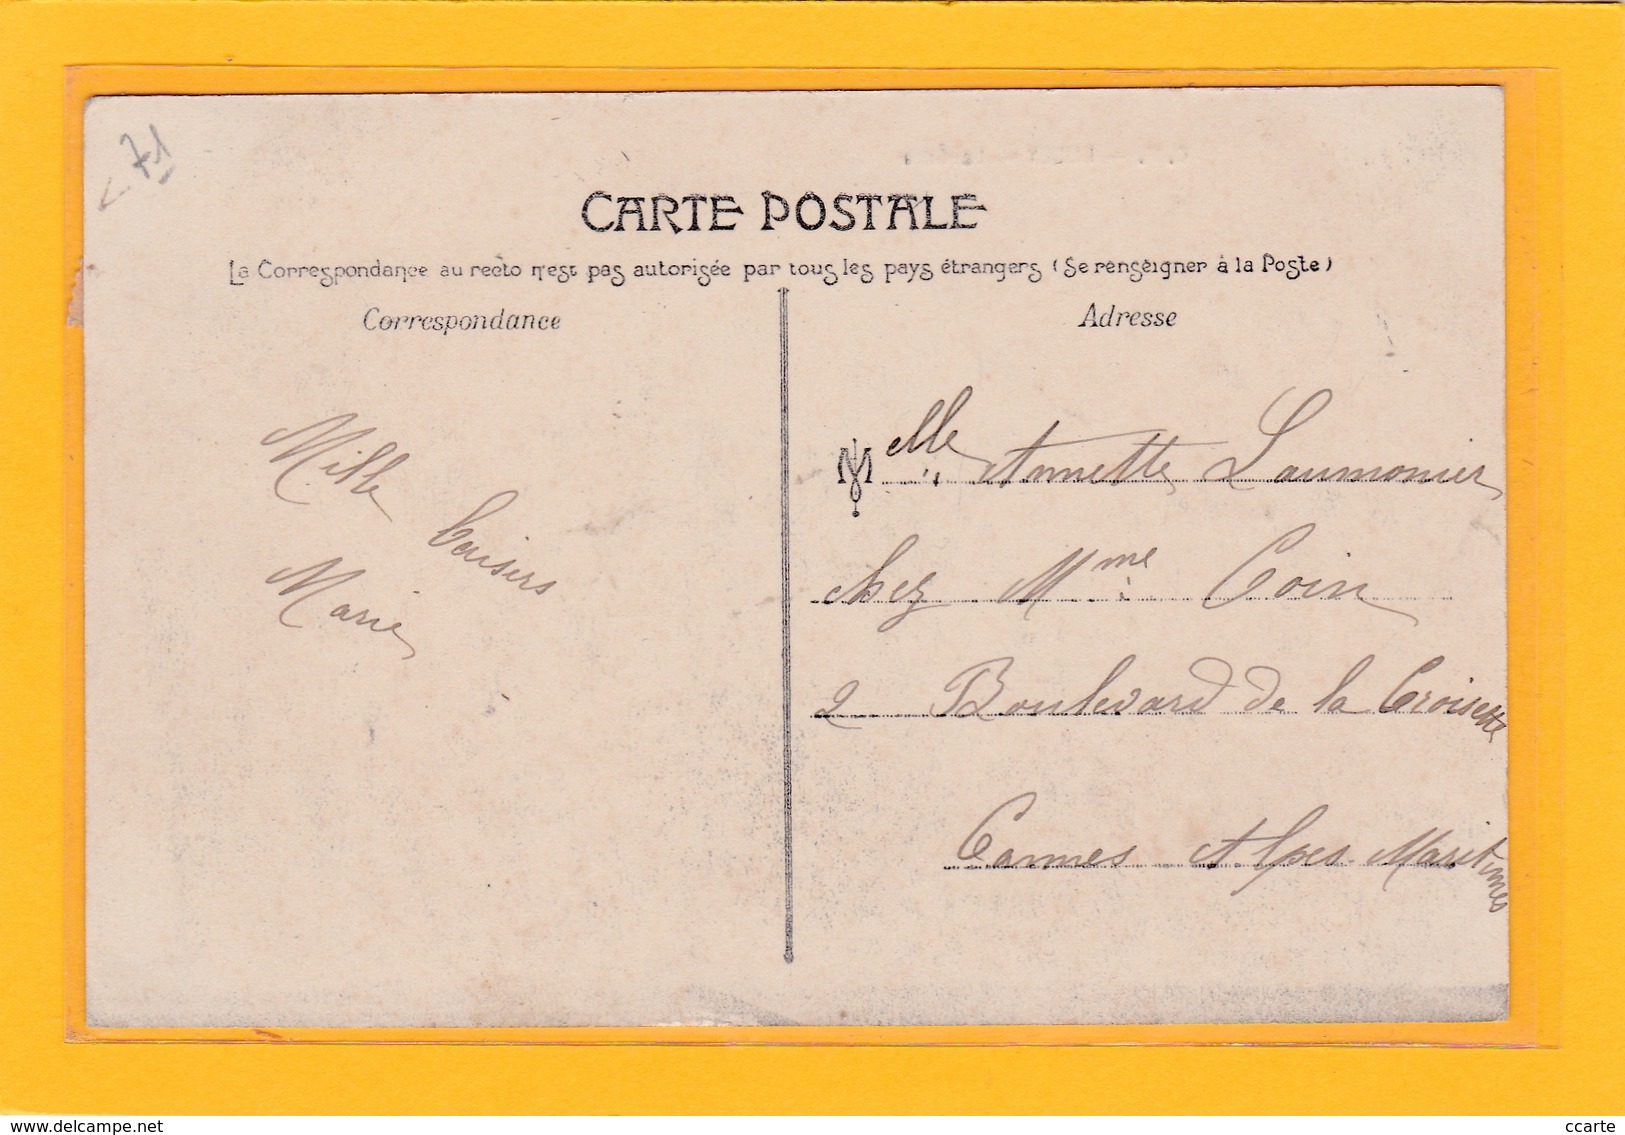 71
CARTE POSTALE
La Correspondance au recto n'est pas autorisée par tous les pays étrangers (Se renseigner à la Poste)
Correspondance
Adresse
Mille
baisers
Marie
Melle Annette Laumonier
chez Mme Coin
2 Boulevard de la Croisette
Cannes Alpes Maritimes
www.delcampe.net
ccarte